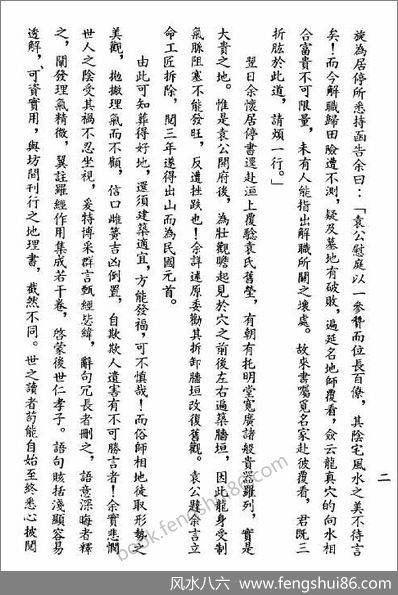 旋為居停所悉持函告余曰：「袁公慰庭以一參贊而位長百僚，其陰宅風水之美不待言
矣！而今解職歸田險遭不測，疑及墓地有破敗，遍延名地師覆看，僉云龍真穴的向水相
合富貴不可限量，未有人能指出解職所關之壞處。故來書囑覓名家赴彼覆看，君既三
折肱於此道，請煩一行。」
翌日余懷居停書還赴洹上覆騐袁氏舊塋，有朝有托明堂寬廣諸般貴器羅列，實是
大貴之地。惟是袁公開府後，為壯觀瞻起見於穴之前後左右遍築牆垣，因此龍身受制
氣脈阻塞不能發旺，反遭挫跌也！余詳述原委勸其折卸牆垣改復舊觀。袁公韙余言立
命工匠拆除，閱三年遂得出山而為民國元首。
由此可知葬得好地，還須建築適宜，方能發福，可不慎哉！而俗師相地徒取形勢之
美觀，拋撇理氣而不顧，信口雌簧吉凶倒置，自欺欺人遺害有不可勝言者！余實悲憫
世人之陰受其禍不忍坐視，爰特博采群言甄經惢緯，辭句冗長者刪之，語意深晦者釋
之，闡發理氣精微，翼註羅經作用集成若干卷，啓蒙後世仁孝子。語句賅括淺顯容易
透解，可資實用，與坊間刊行之地理書，截然不同。世之讀者苟能自始至終悉心披閱
二
book.fengshui86.com
风水八六
www.fengshui86.com